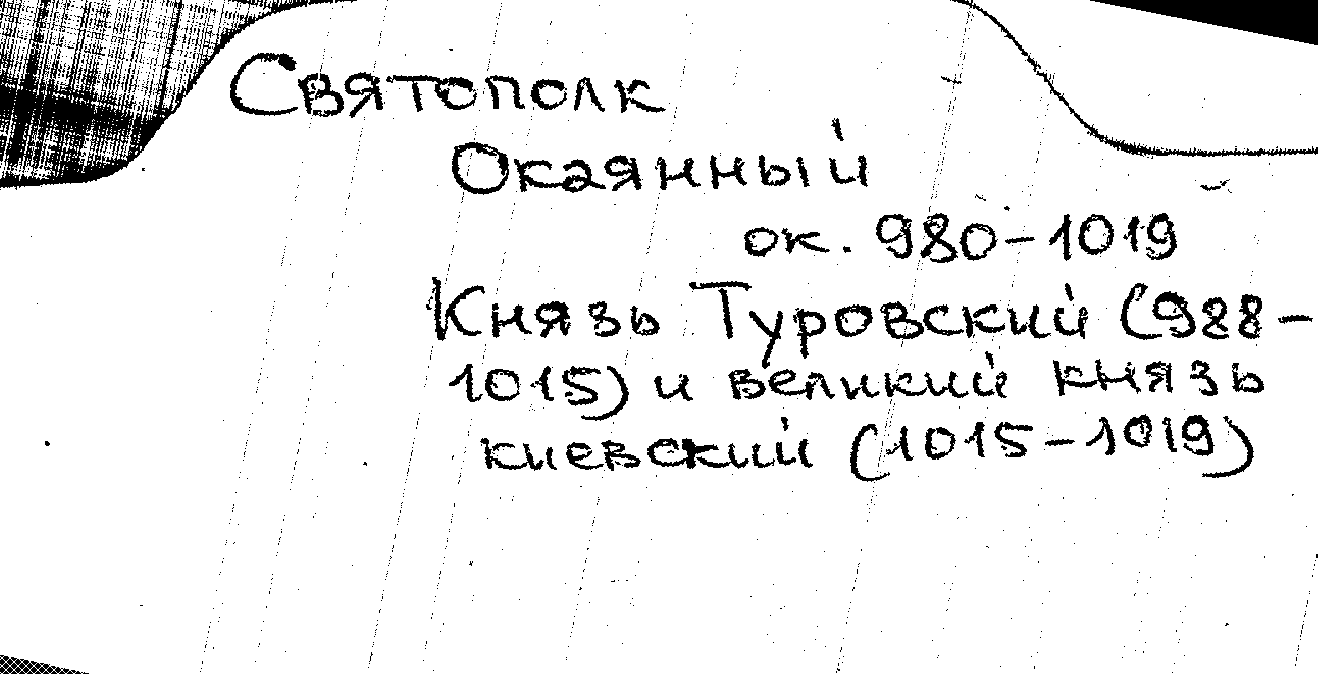 Святополк
Окаянный
ок. 980-1019
Князь Туровский (988-
1015) и великий князь
киевский (1015-1019)